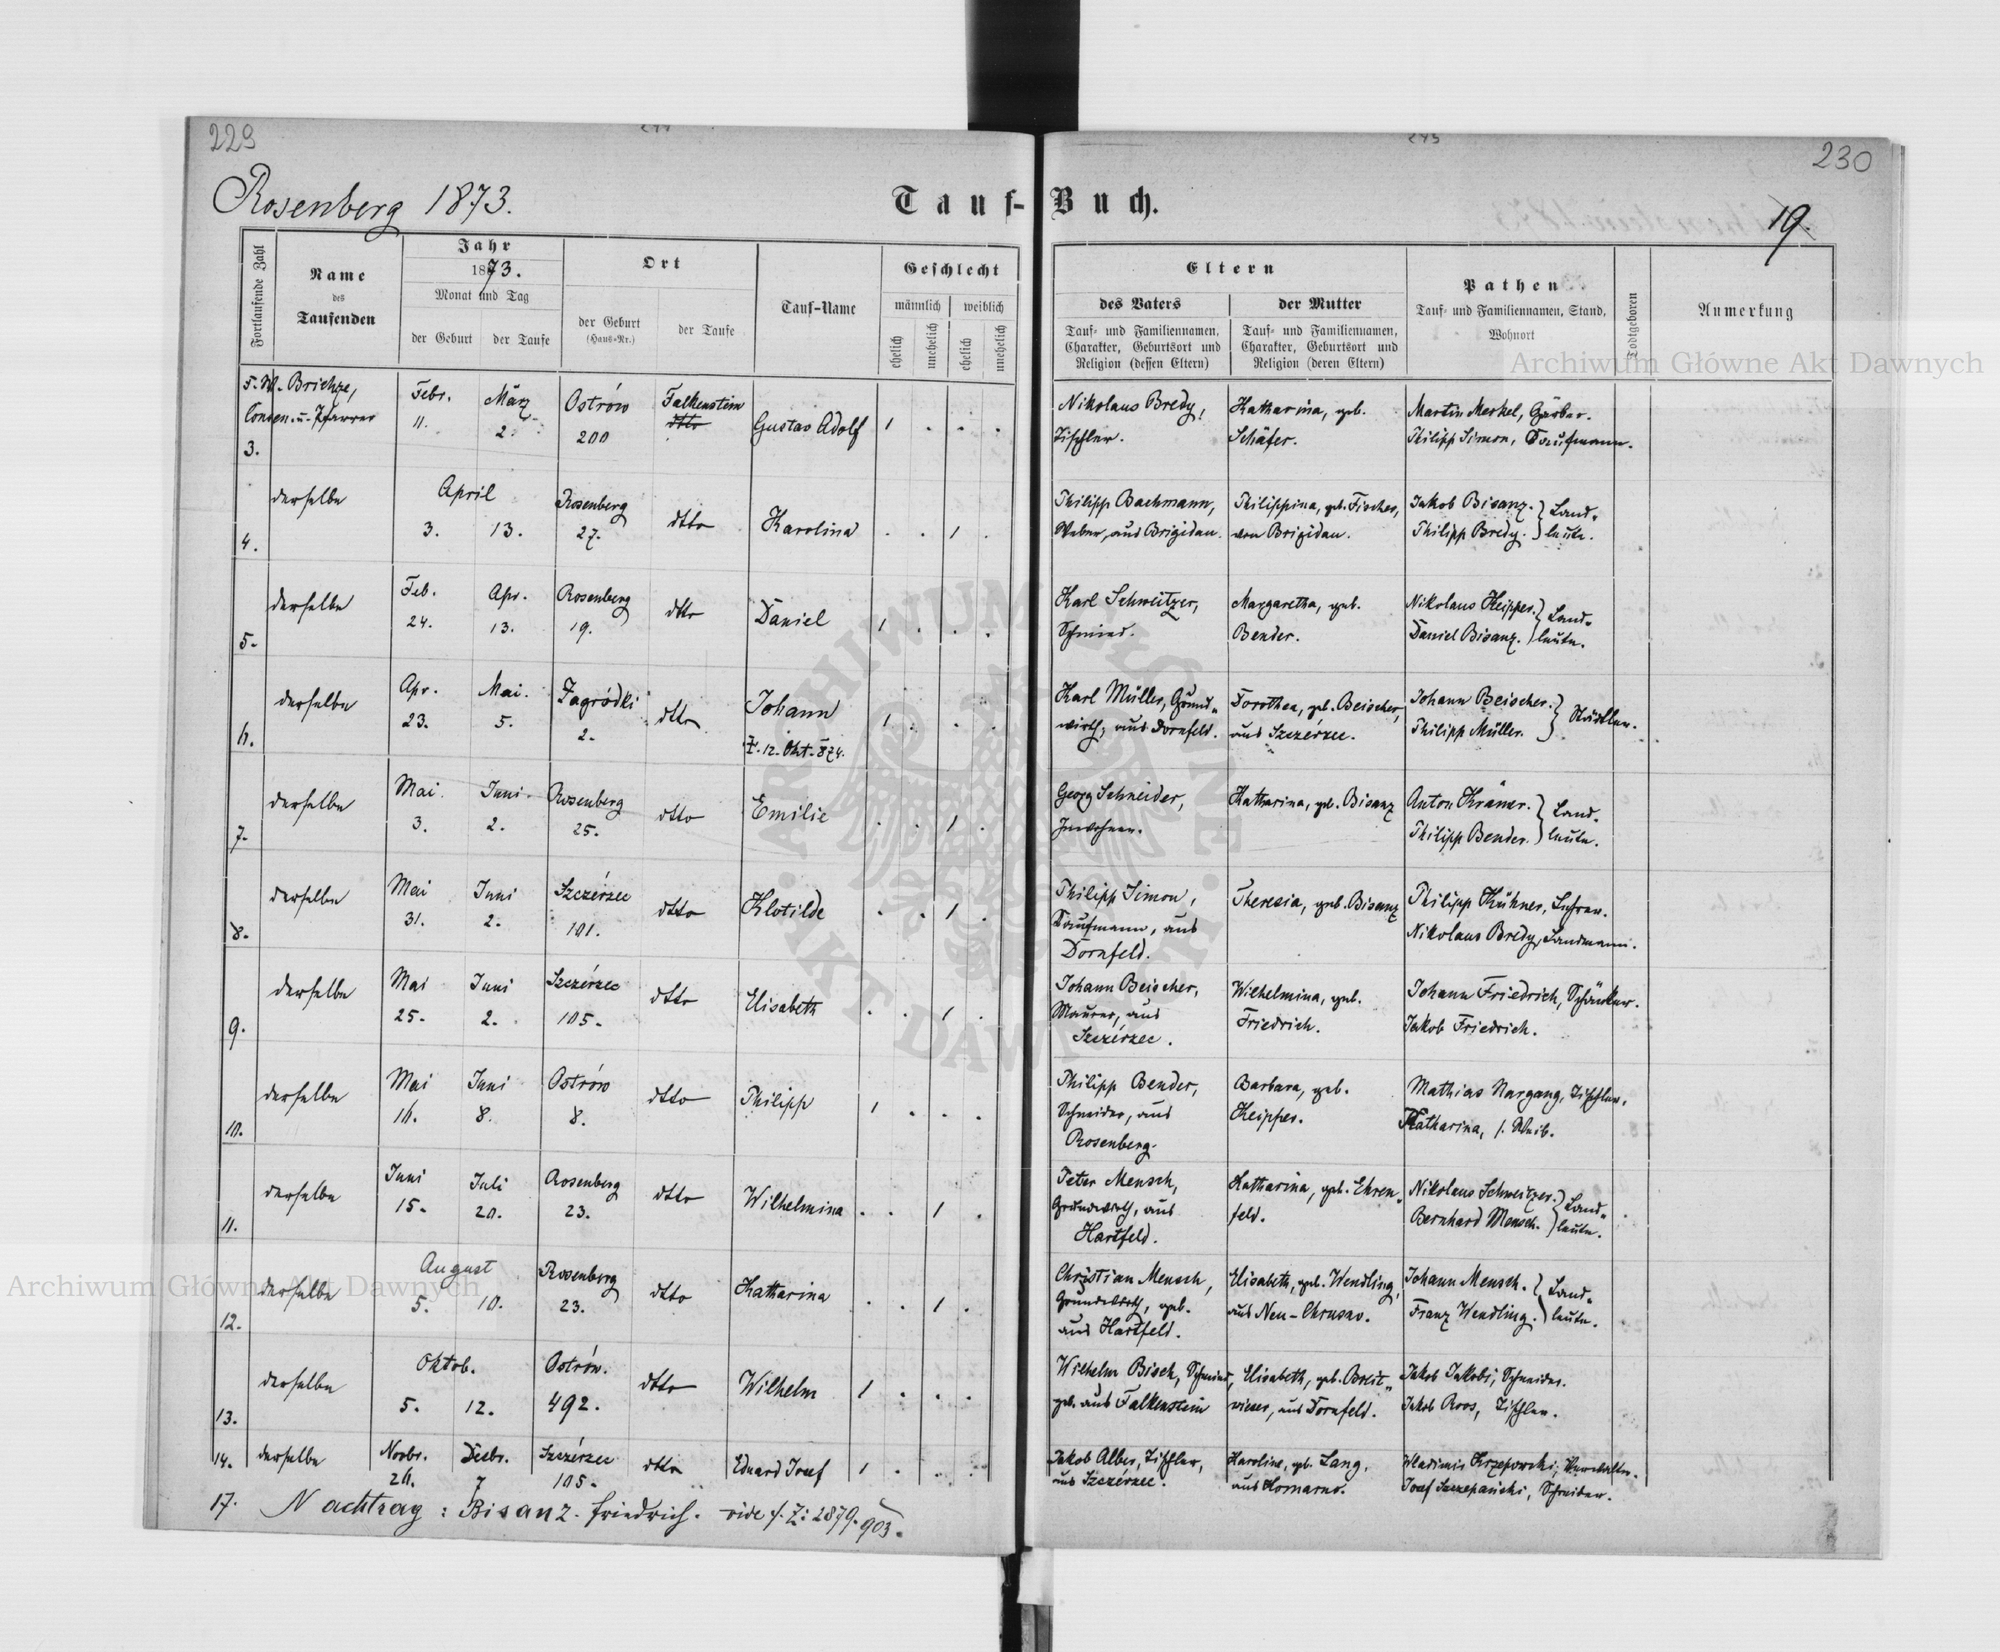 229
230
Rosenberg 1873.
Tauf-Buch.
19.
Fortlaufende Zahl
Name
des
Taufenden
Jahr
1873.
Monat und Tag
der Geburt
der Taufe
Ort
der Geburt
(Haus-Nr.)
der Taufe
Tauf-Name
Geschlecht
männlich
weiblich
ehelich
unehelich
ehelich
unehelich
Eltern
des Vaters
Tauf- und Familiennamen,
Charakter, Geburtsort und
Religion (dessen Eltern)
der Mutter
Tauf- und Familiennamen,
Charakter, Geburtsort und
Religion (deren Eltern)
Pathen
Tauf- und Familiennamen, Stand,
Wohnort
Todtgeboren
Anmerkung
3.
Consen. u. Pfarrer
Febr.
11.
März
2.
Ostrów
200
Falkenstein
dtto
Gustav Adolf
1 . . .
Nikolaus Bredy,
Tischler.
Katharina, geb.
Schäfer.
Martin Merkel, Gärber.
Philipp Simon, Kaufmann.
4.
derselbe
April
3. 13.
Rosenberg
27.
dtto
Karolina
. . 1 .
Philipp Bachmann,
Weber, aus Brigidau.
Philippina, geb. Fischer,
von Brigidau.
Jakob Bisanz.
Philipp Bredy.
Land-
leute.
5.
derselbe
Feb.
24.
Apr.
13.
Rosenberg
19.
dtto
Daniel
1 . . .
Karl Schweitzer,
Schmied.
Margaretha, geb.
Bender.
Nikolaus Keipper.
Daniel Bisanz.
Land-
leute.
6.
derselbe
Apr.
23.
Mai.
5.
Zagródki
2.
dtto
Johann
12. Okt. 874.
1 . . .
Karl Müller, Grund-
wirth, aus Dornfeld.
Dorothea, geb. Beischer,
aus Szczérzec.
Johann Beischer.
Philipp Müller.
7.
derselbe
Mai.
3.
Juni.
2.
Rosenberg
25.
dtto
Emilie
. . 1 .
Georg Schneider,
Inwohner.
Katharina, geb. Bisanz
Anton Kräner.
Philipp Bender.
Land-
leute.
8.
derselbe
Mai
31.
Juni
2.
Szczérzec
101.
dtto
Klotilde
. . 1 .
Philipp Simon,
Kaufmann, aus
Dornfeld.
Theresia, geb. Bisanz
Philipp Kühner, Lehrer.
Nikolaus Bredy, Landmann.
9.
derselbe
Mai
25.
Juni
2.
Szczérzec
105.
dtto
Elisabeth
. . 1 .
Johann Beischer,
Maurer, aus
Szczérzec.
Wilhelmina, geb.
Friedrich.
Johann Friedrich,
Jakob Friedrich.
10.
derselbe
Mai
16.
Juni
8.
Ostrów
8.
dtto
Philipp
1 . . .
Philipp Bender,
Schneider, aus
Rosenberg.
Barbara, geb.
Keipper.
Mathias Nargang, Tischler.
Katharina, s. Weib.
11.
derselbe
Juni
15.
Juli
20.
Rosenberg
23.
dtto
Wilhelmina
. . 1 .
Peter Mensch,
Grundwirth, aus
Hartfeld.
Katharina, geb. Ehren-
feld.
Nikolaus Schweitzer.
Bernhard Mensch.
Land-
leute.
12.
derselbe
August
5. 10.
Rosenberg
23.
dtto
Katharina
. . 1 .
Christian Mensch,
Grundwirth, geb.
aus Hartfeld.
Elisabeth, geb. Wendling,
aus Neu-Chrusno.
Johann Mensch.
Franz Wendling.
Land-
leute.
13.
derselbe
Oktob.
5. 12.
Ostrów.
492.
dtto
Wilhelm
1 . . .
Wilhelm Bisch, Schmied,
geb. aus Falkenstein
Elisabeth, geb. Breit-
wieser, aus Dornfeld.
Jakob Jakobi, Schneider.
Jakob Roos, Tischler.
14.
derselbe
Novbr.
26.
Dezbr.
7
Szczérzec
105.
dtto
Eduard Josef
1 . . .
Jakob Alber, Tischler,
aus Szczérzec.
Karoline, geb. Lang,
aus Komarno.
Josef Szczepański, Schreiber.
17. Nachtrag: Bisanz Friedrich. vide s. Z: 2879. 903.
Archiwum Główne Akt Dawnych
Archiwum Główne Akt Dawnych
ARCHIWUM GŁÓWNE AKT DAWNYCH